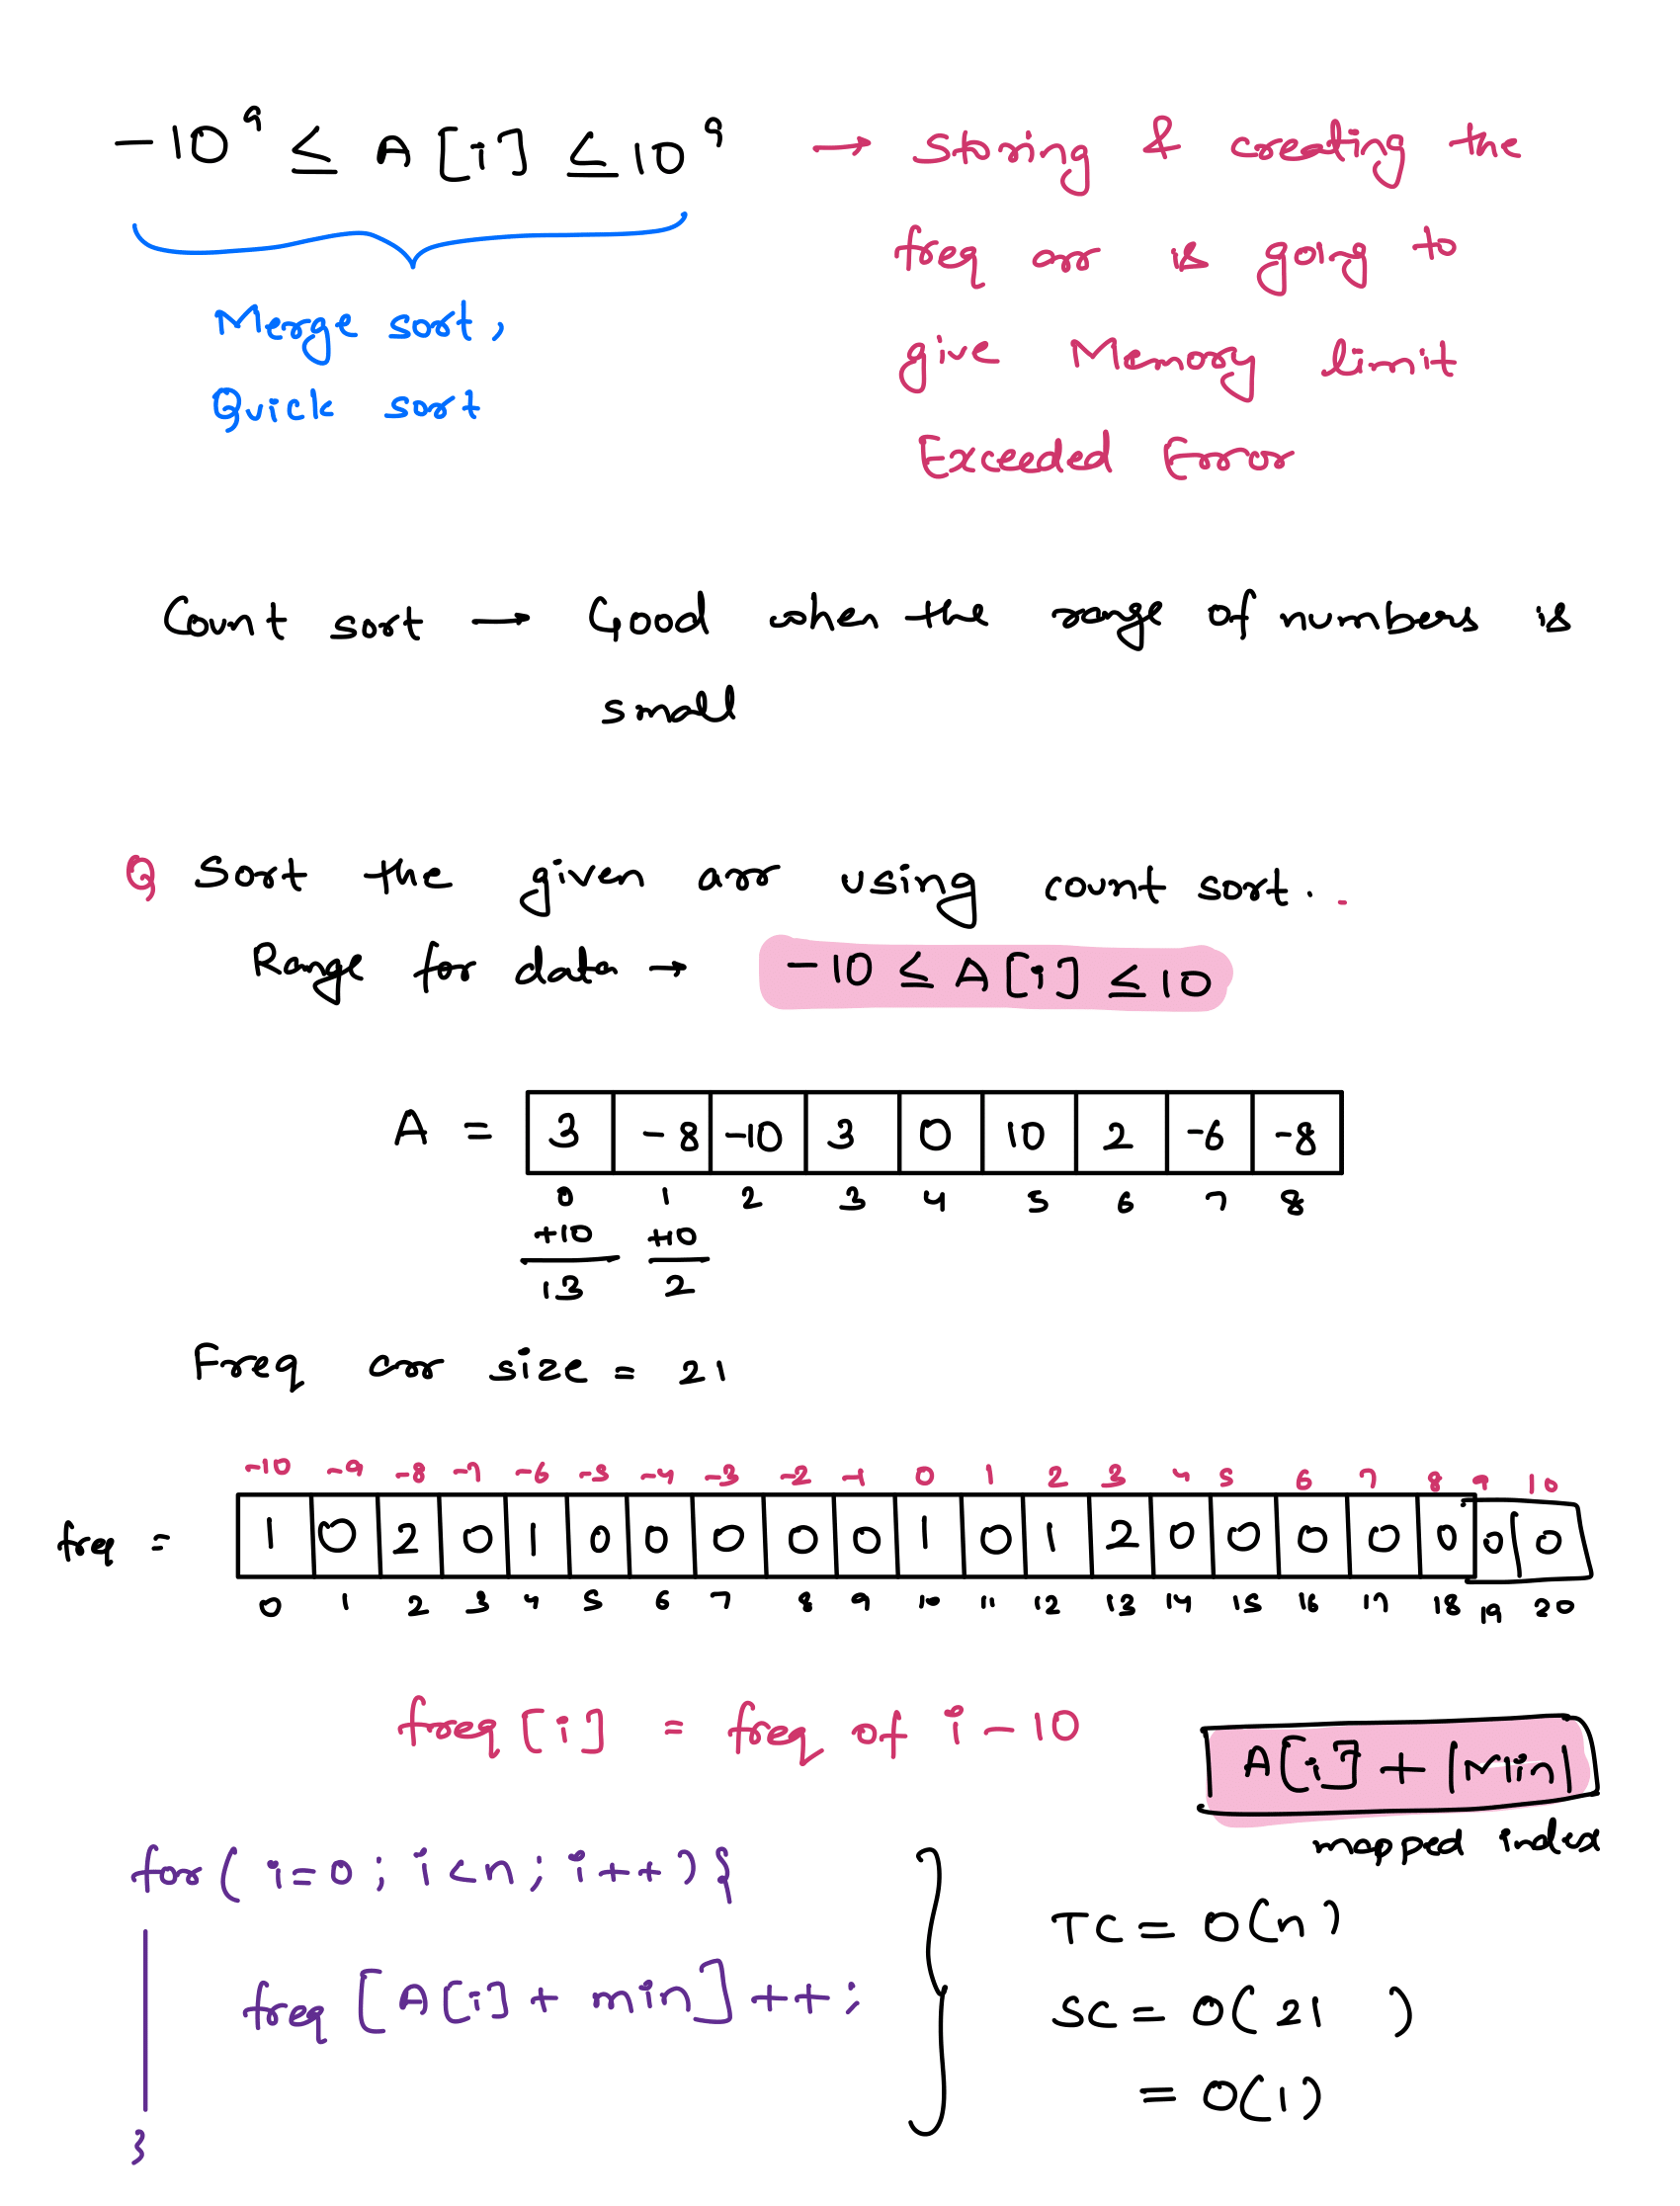 -10⁹ ≤ A[i] ≤ 10⁹ → storing & creating the
freq arr is going to
give Memory limit
Exceeded Error
Merge sort,
Quick sort
Count sort → Good when the range of numbers is
small
Q Sort the given arr using count sort..
Range for data → -10 ≤ A[i] ≤ 10
A = 3 -8 -10 3 0 10 2 -6 -8
0 1 2 3 4 5 6 7 8
+10 +10
13 2
Freq arr size = 21
-10 -9 -8 -7 -6 -5 -4 -3 -2 -1 0 1 2 3 4 5 6 7 8 9 10
freq = 1 0 2 0 1 0 0 0 0 0 1 0 1 2 0 0 0 0 0 0 0
0 1 2 3 4 5 6 7 8 9 10 11 12 13 14 15 16 17 18 19 20
freq[i] = freq of i-10
A[i] + |Min|
mapped index
for( i=0; i<n; i++){
freq[A[i] + min]++;
}
TC = O(n)
SC = O(21 )
= O(1)